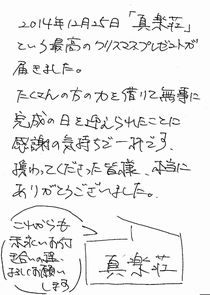 2014年12月25日「真楽荘」
という最高のクリスマスプレゼントが
届きました。
たくさんの方の力を借りて無事に
完成の日を迎えられたことに
感謝の気持ちで一杯です。
携わってくださった皆様、本当に
ありがとうございました。
これからも
末永いお付
き合いの程、
よろしくお願い
します
真楽荘